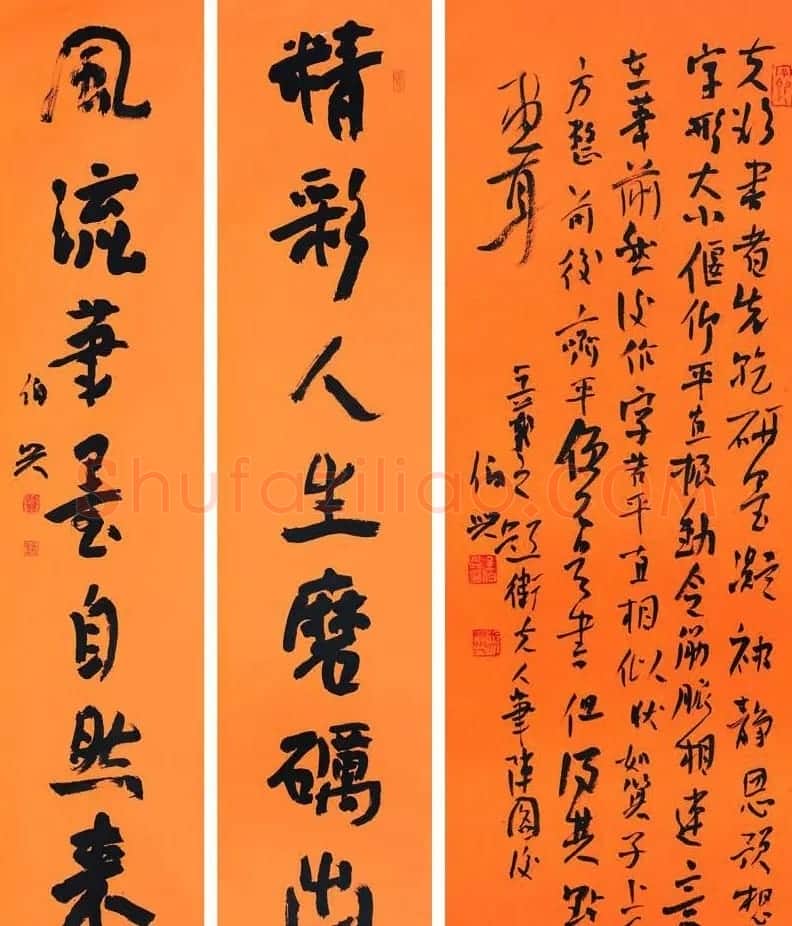 夫欲書者先乾研墨凝神静思预想
字形大小偃仰平直振動令筋脈相連意
在筆前然後作字若平直相似状如算子上下
方整前後齊平便不是書但得其點
畫耳
王羲之題衛夫人筆陣圖後
伯兴
精彩人生磨礪出
風流筆墨自然来
伯兴
Shufaziliao.COM